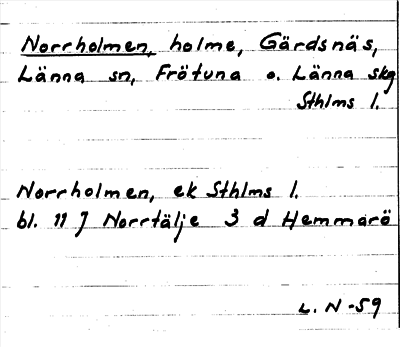 Norrholmen, holme, Gärdsnäs,
Länna sn, Frötuna o. Länna skg
Sthlms l.
Norrholmen, ek Sthlms l.
bl. 11 J Norrtälje 3 d Hemmarö
L. N -59